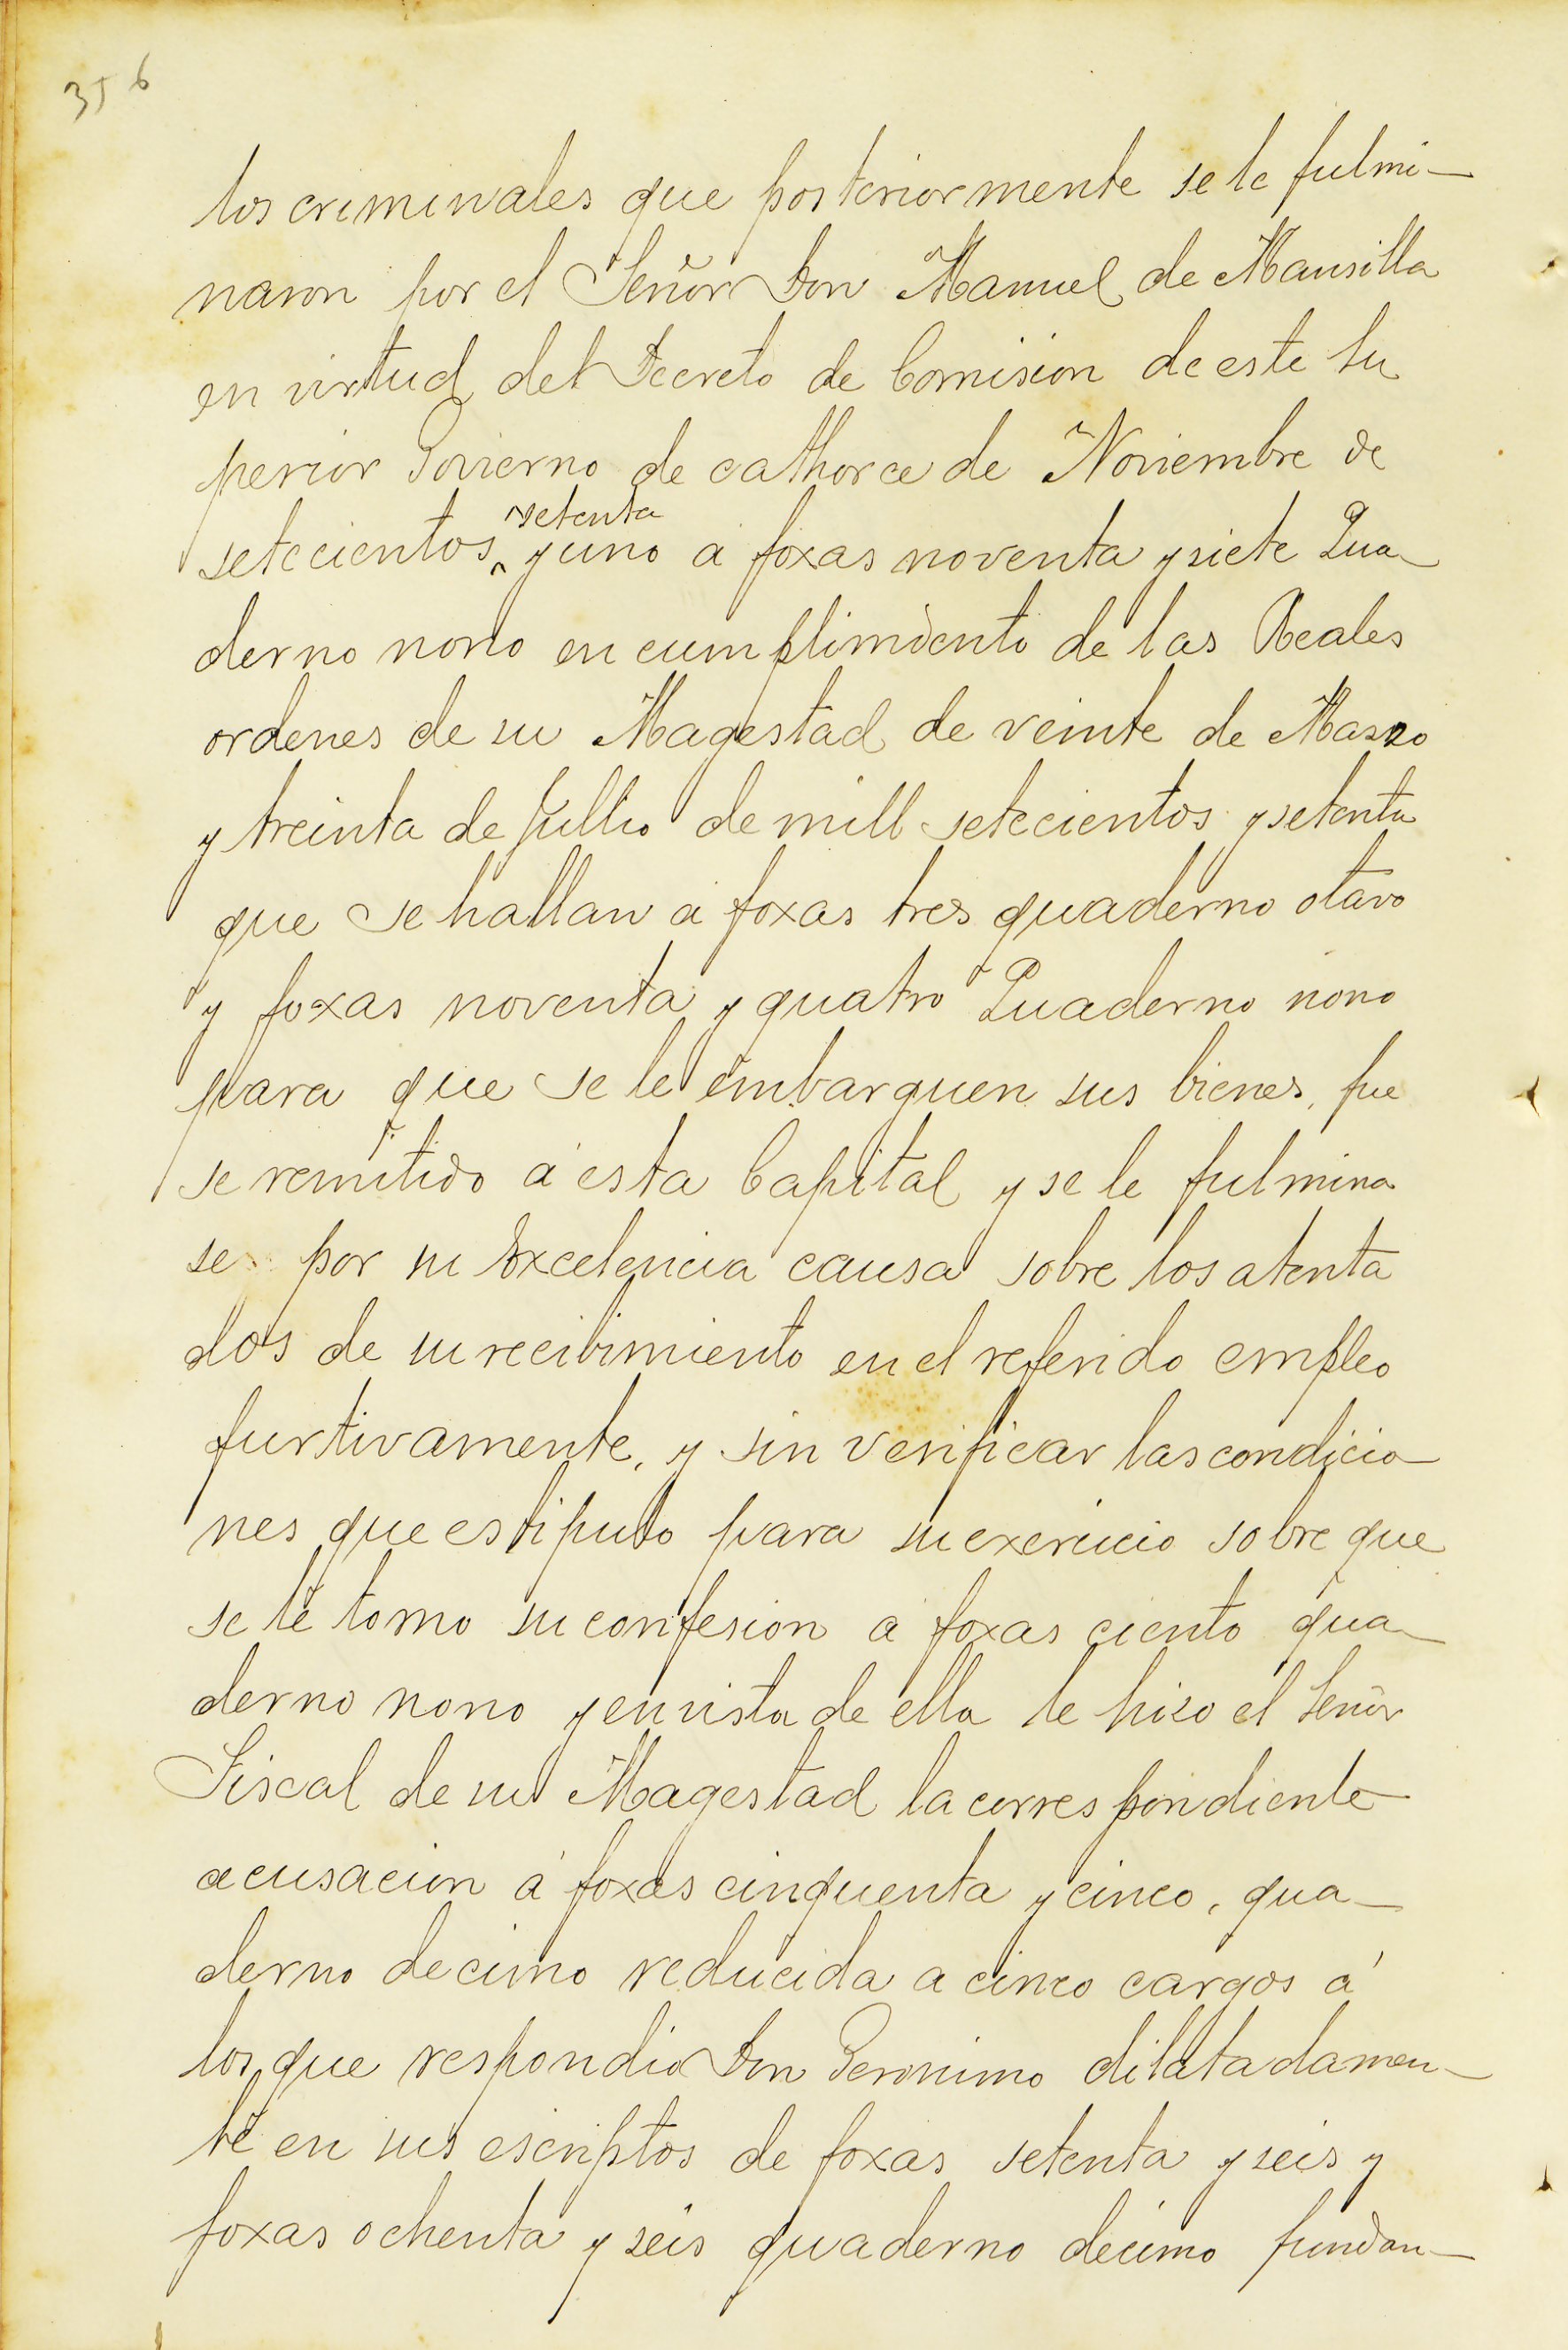 356
los criminales que posteriormente se le fulmi-
naron por el Señor Don Manuel de Mansilla
en virtud del Decreto de Comision de este Su
perior Govierno de cathorce de Noviembre de
setecientos setenta y uno á foxas noventa y siete Qua
derno nono en cumplimiento de las Reales
ordenes de su Magestad de veinte de Marzo
y treinta de Jullio de mill setecientos y setenta
que se hallan á foxas tres quaderno otavo
y foxas noventa y quatro Quaderno nono
para que se le embarguen sus bienes, fue
se remitido á esta Capital y se le fulmina
se por su Excelencia causa sobre los atenta
dos de su recibimiento en el referido empleo
furtivamente, y sin verificar las condicio-
nes que estipulo para su exercicio sobre que
se le tomo su confesion á foxas ciento qua-
derno nono y en vista de ella le hizo el Señor
Fiscal de su Magestad la correspondiente
acusacion á foxas cinquenta y cinco, qua-
derno decimo reducida a cinco cargos á
los que respondio Don Geronimo dilatadamen-
te en sus escriptos de foxas setenta y seis y
foxas ochenta y seis quaderno decimo fundan-